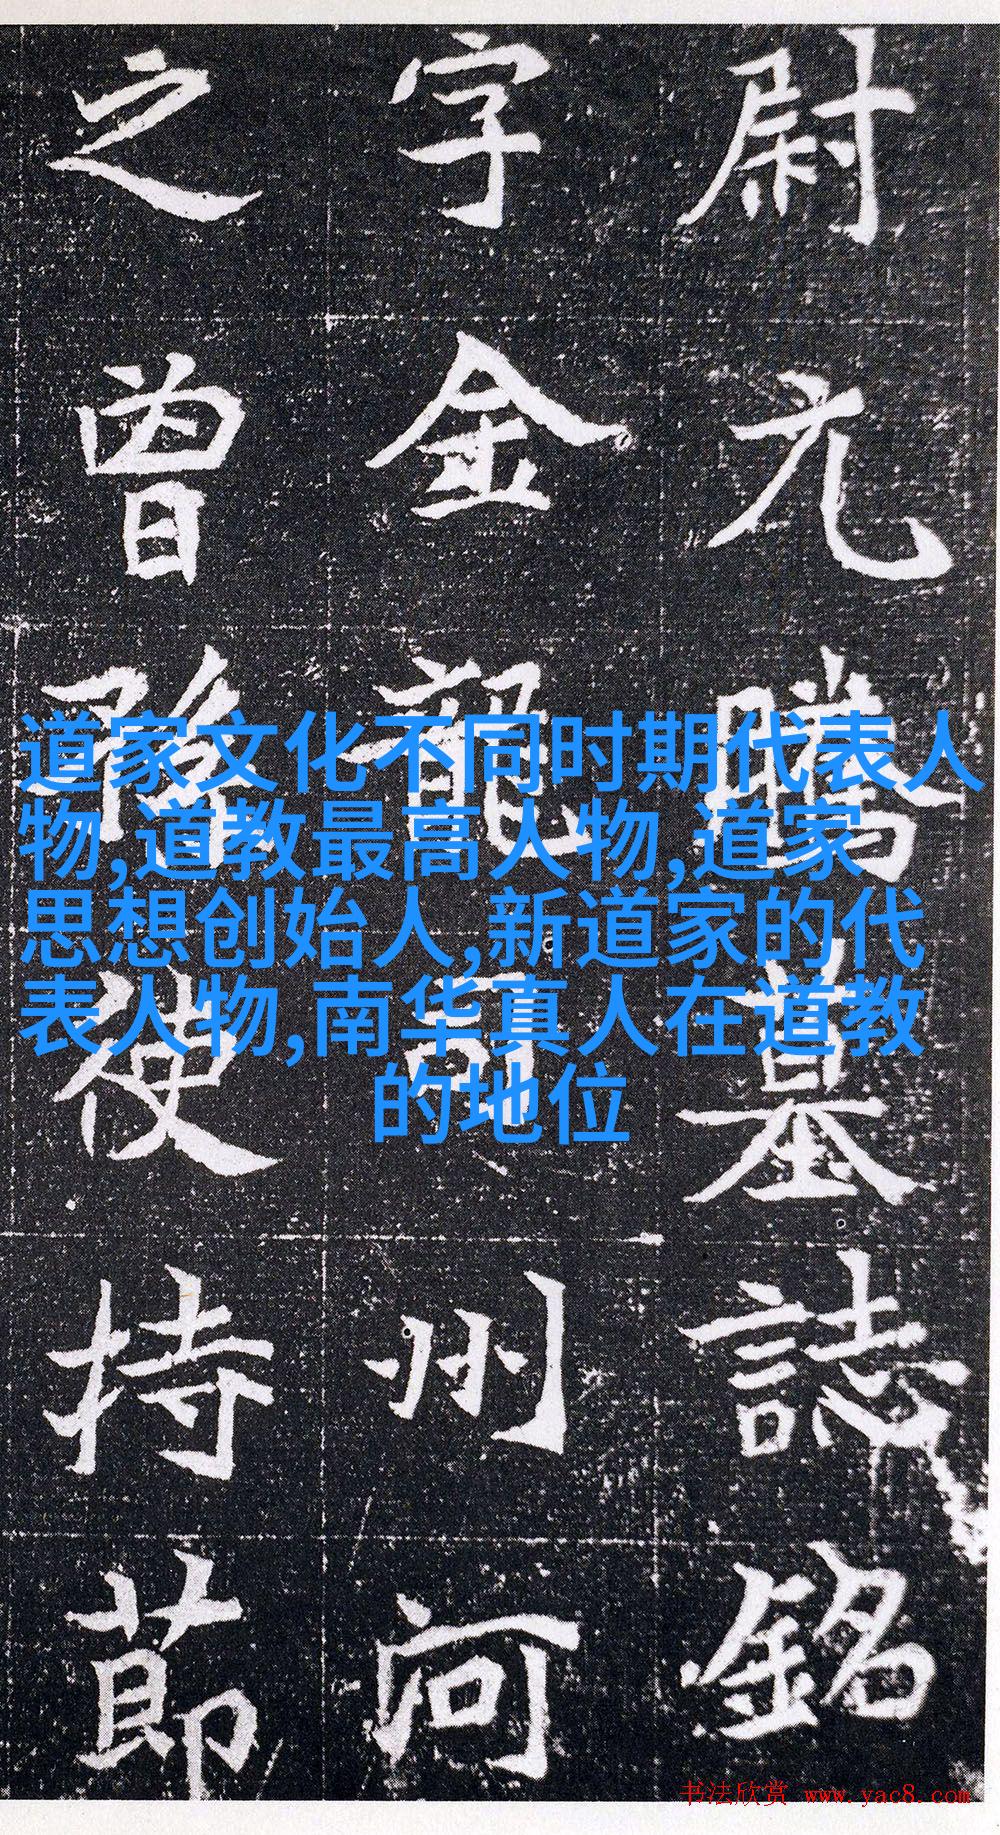 尉元騰墓誌銘
字金龍司州河
之曾孫使持節
道家文化不同时期代表人
物,道教最高人物,道家
思想创始人,新道家的代
表人物,南华真人在道教
的地位
书法欣赏 www.yac8.com